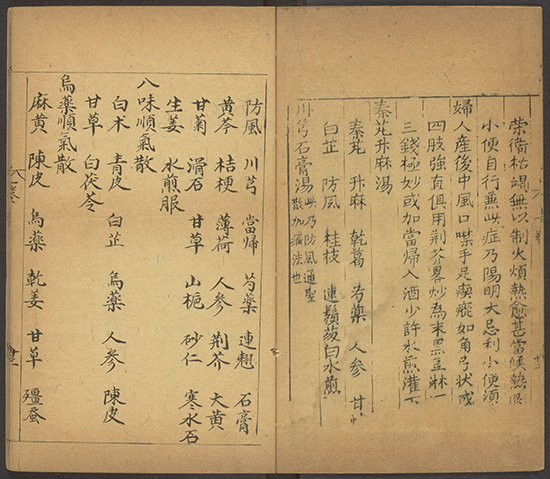 榮衛枯竭無以制火煩熱愈甚當候熱退
小便自行無此症乃陽明大忌利小便須
婦人産後中風口噤手足瘈瘲如角弓狀或
四肢強直俱用荆芥畧炒爲末黑豆淋
三錢極妙或加當歸入酒少許水煎灌下
秦艽升麻湯
秦艽 升麻 乾葛 芍藥 人參 甘
白芷 防風 桂枝 連鬚葱白水煎
川芎石膏湯 此乃防風通聖散加减法也
防風 川芎 當歸 芍藥 連翹 石膏
黄芩 桔梗 薄荷 人參 荆芥 大黄
甘菊 滑石 甘草 山梔 砂仁 寒水石
生姜 水煎服
八味順氣散
白术 青皮 白芷 烏藥 人參 陳皮
甘草 白茯苓
烏藥順氣散
麻黄 陳皮 烏藥 乾姜 甘草 殭蚕